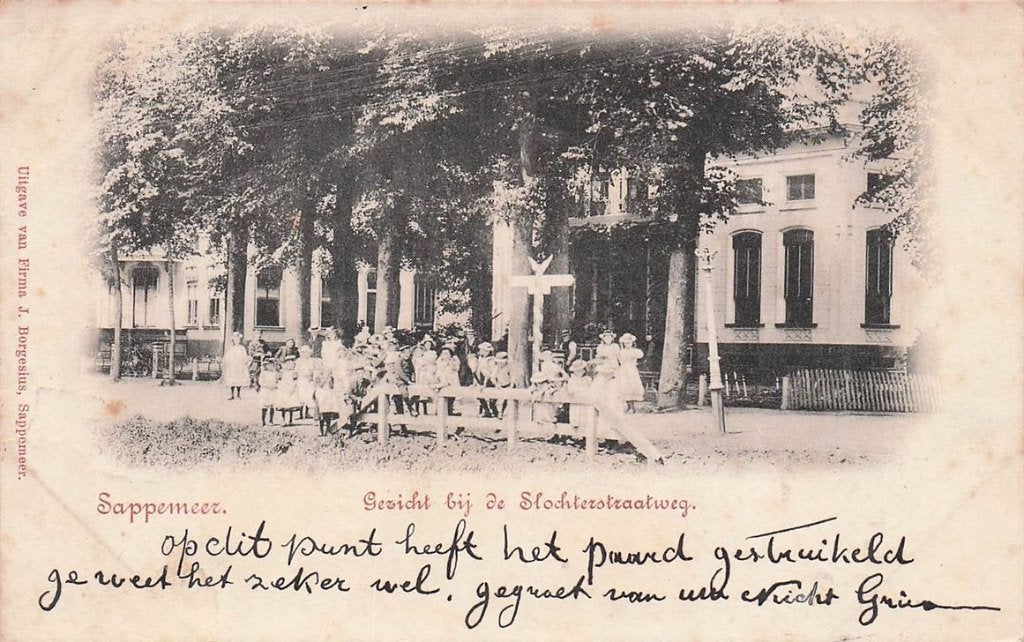 Uitgave van Firma J. Borgesius, Sappemeer.
Sappemeer. Gezicht bij de Slochterstraatweg.
op dit punt heeft het paard gestruikeld
ge weet het zeker wel. gegroet van uw Nicht